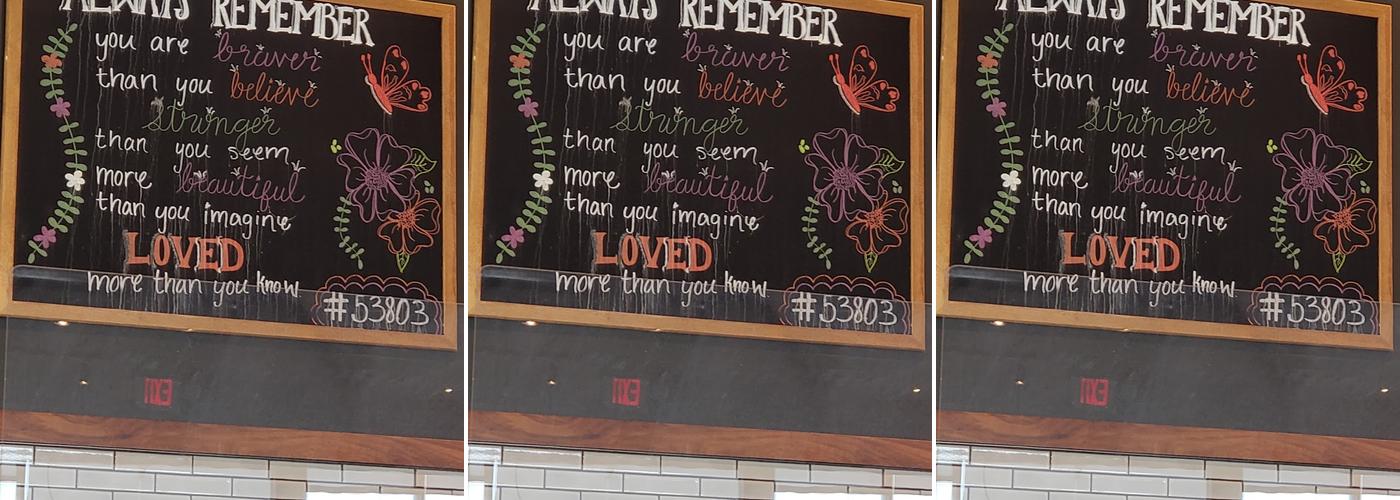 ALWAYS REMEMBER
you are braver
than you believe
Stronger
than you seem
more beautiful
than you imagine
LOVED
more than you know
#53803
ALWAYS REMEMBER
you are braver
than you believe
Stronger
than you seem
more beautiful
than you imagine
LOVED
more than you know
#53803
ALWAYS REMEMBER
you are braver
than you believe
Stronger
than you seem
more beautiful
than you imagine
LOVED
more than you know
#53803